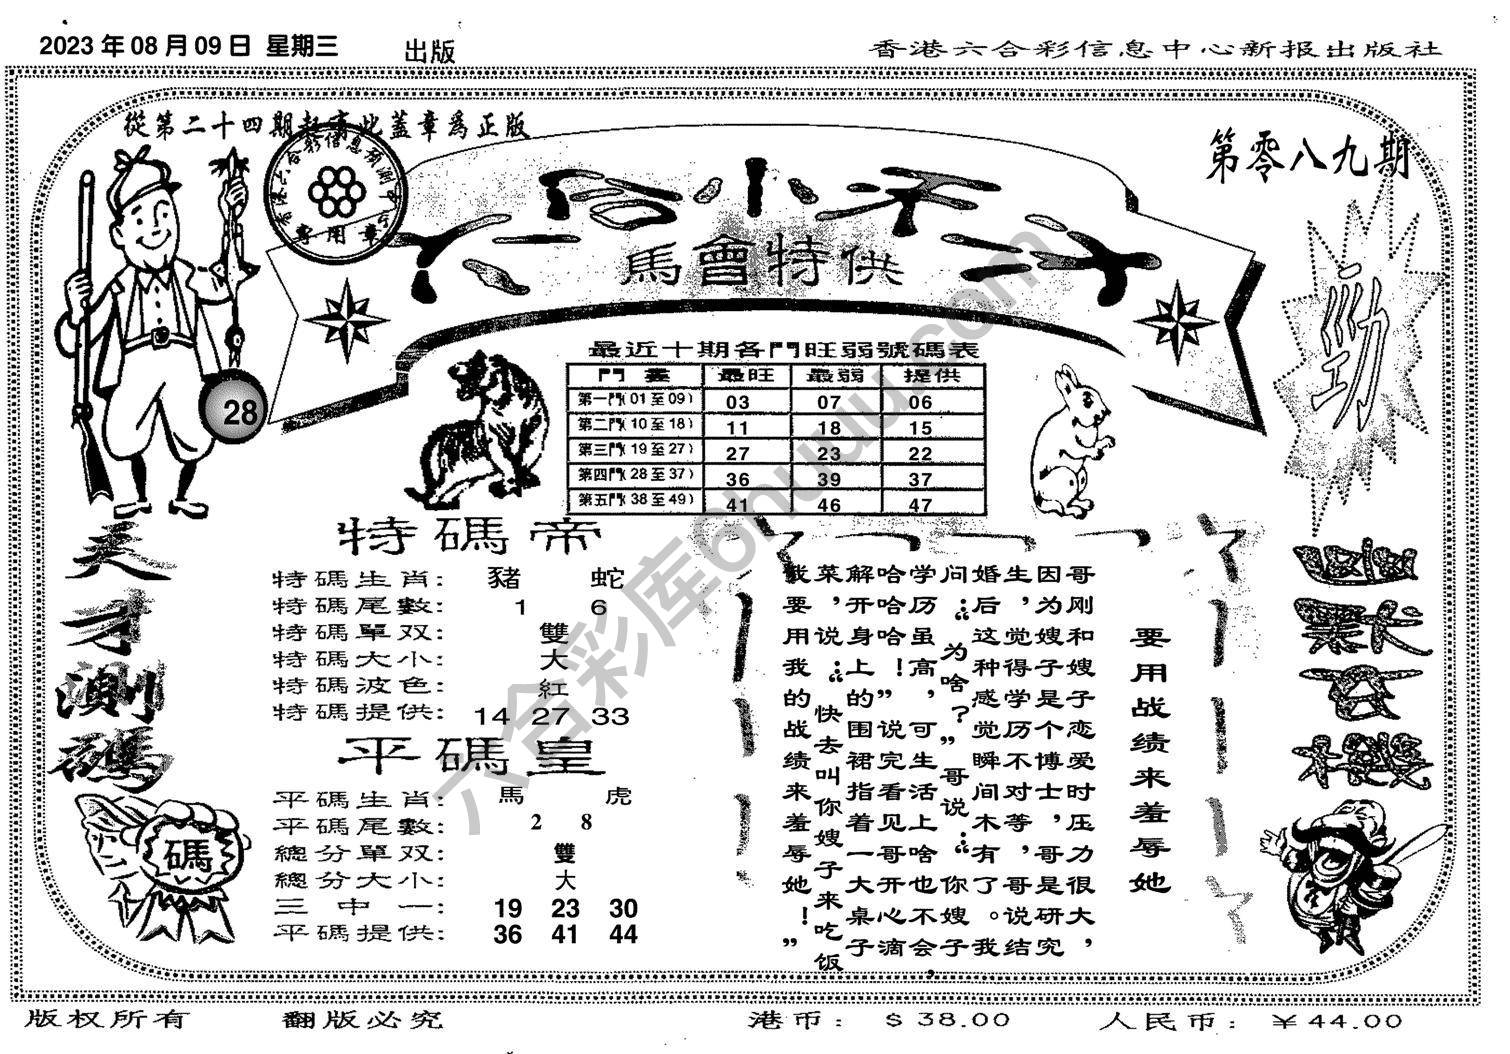 2023年08月09日 星期三
出版
香港六合彩信息中心新报出版社
從第二十四期起有此蓋章爲正版
第零八九期
六合小天才
馬會特供
專用章
勁
28
最近十期各門旺弱號碼表
門 最旺 最弱 提供
第一門(01至09) 03 07 06
第二門(10至18) 11 18 15
第三門(19至27) 27 23 22
第四門(28至37) 36 39 37
第五門(38至49) 41 46 47
天才測碼
特碼帝
特碼生肖: 豬 蛇
特碼尾數: 1 6
特碼單双: 雙
特碼大小: 大
特碼波色: 紅
特碼提供: 14 27 33
平碼皇
平碼生肖: 馬 虎
平碼尾數: 2 8
總分單双: 雙
總分大小: 大
三中一: 19 23 30
平碼提供: 36 41 44
碼
要用战绩来羞辱她
哥刚和嫂子恋爱时压力很大,
因为嫂子是个博士,哥是研究
生,觉得学历不对等,哥说结
婚后这种感觉瞬间木有了。我
问:“为啥?”哥说:“你嫂子
学历虽高,可生活上啥也不会,
哈哈哈!”说完看见哥开心滴
解开身上的围裙指着一大桌子
菜,说:“快去叫你嫂子来吃饭
我要用我的战绩来羞辱她!”
幽默玄機
版权所有
翻版必究
港币: $38.00
人民币: ¥44.00
六合彩库6huuu.com